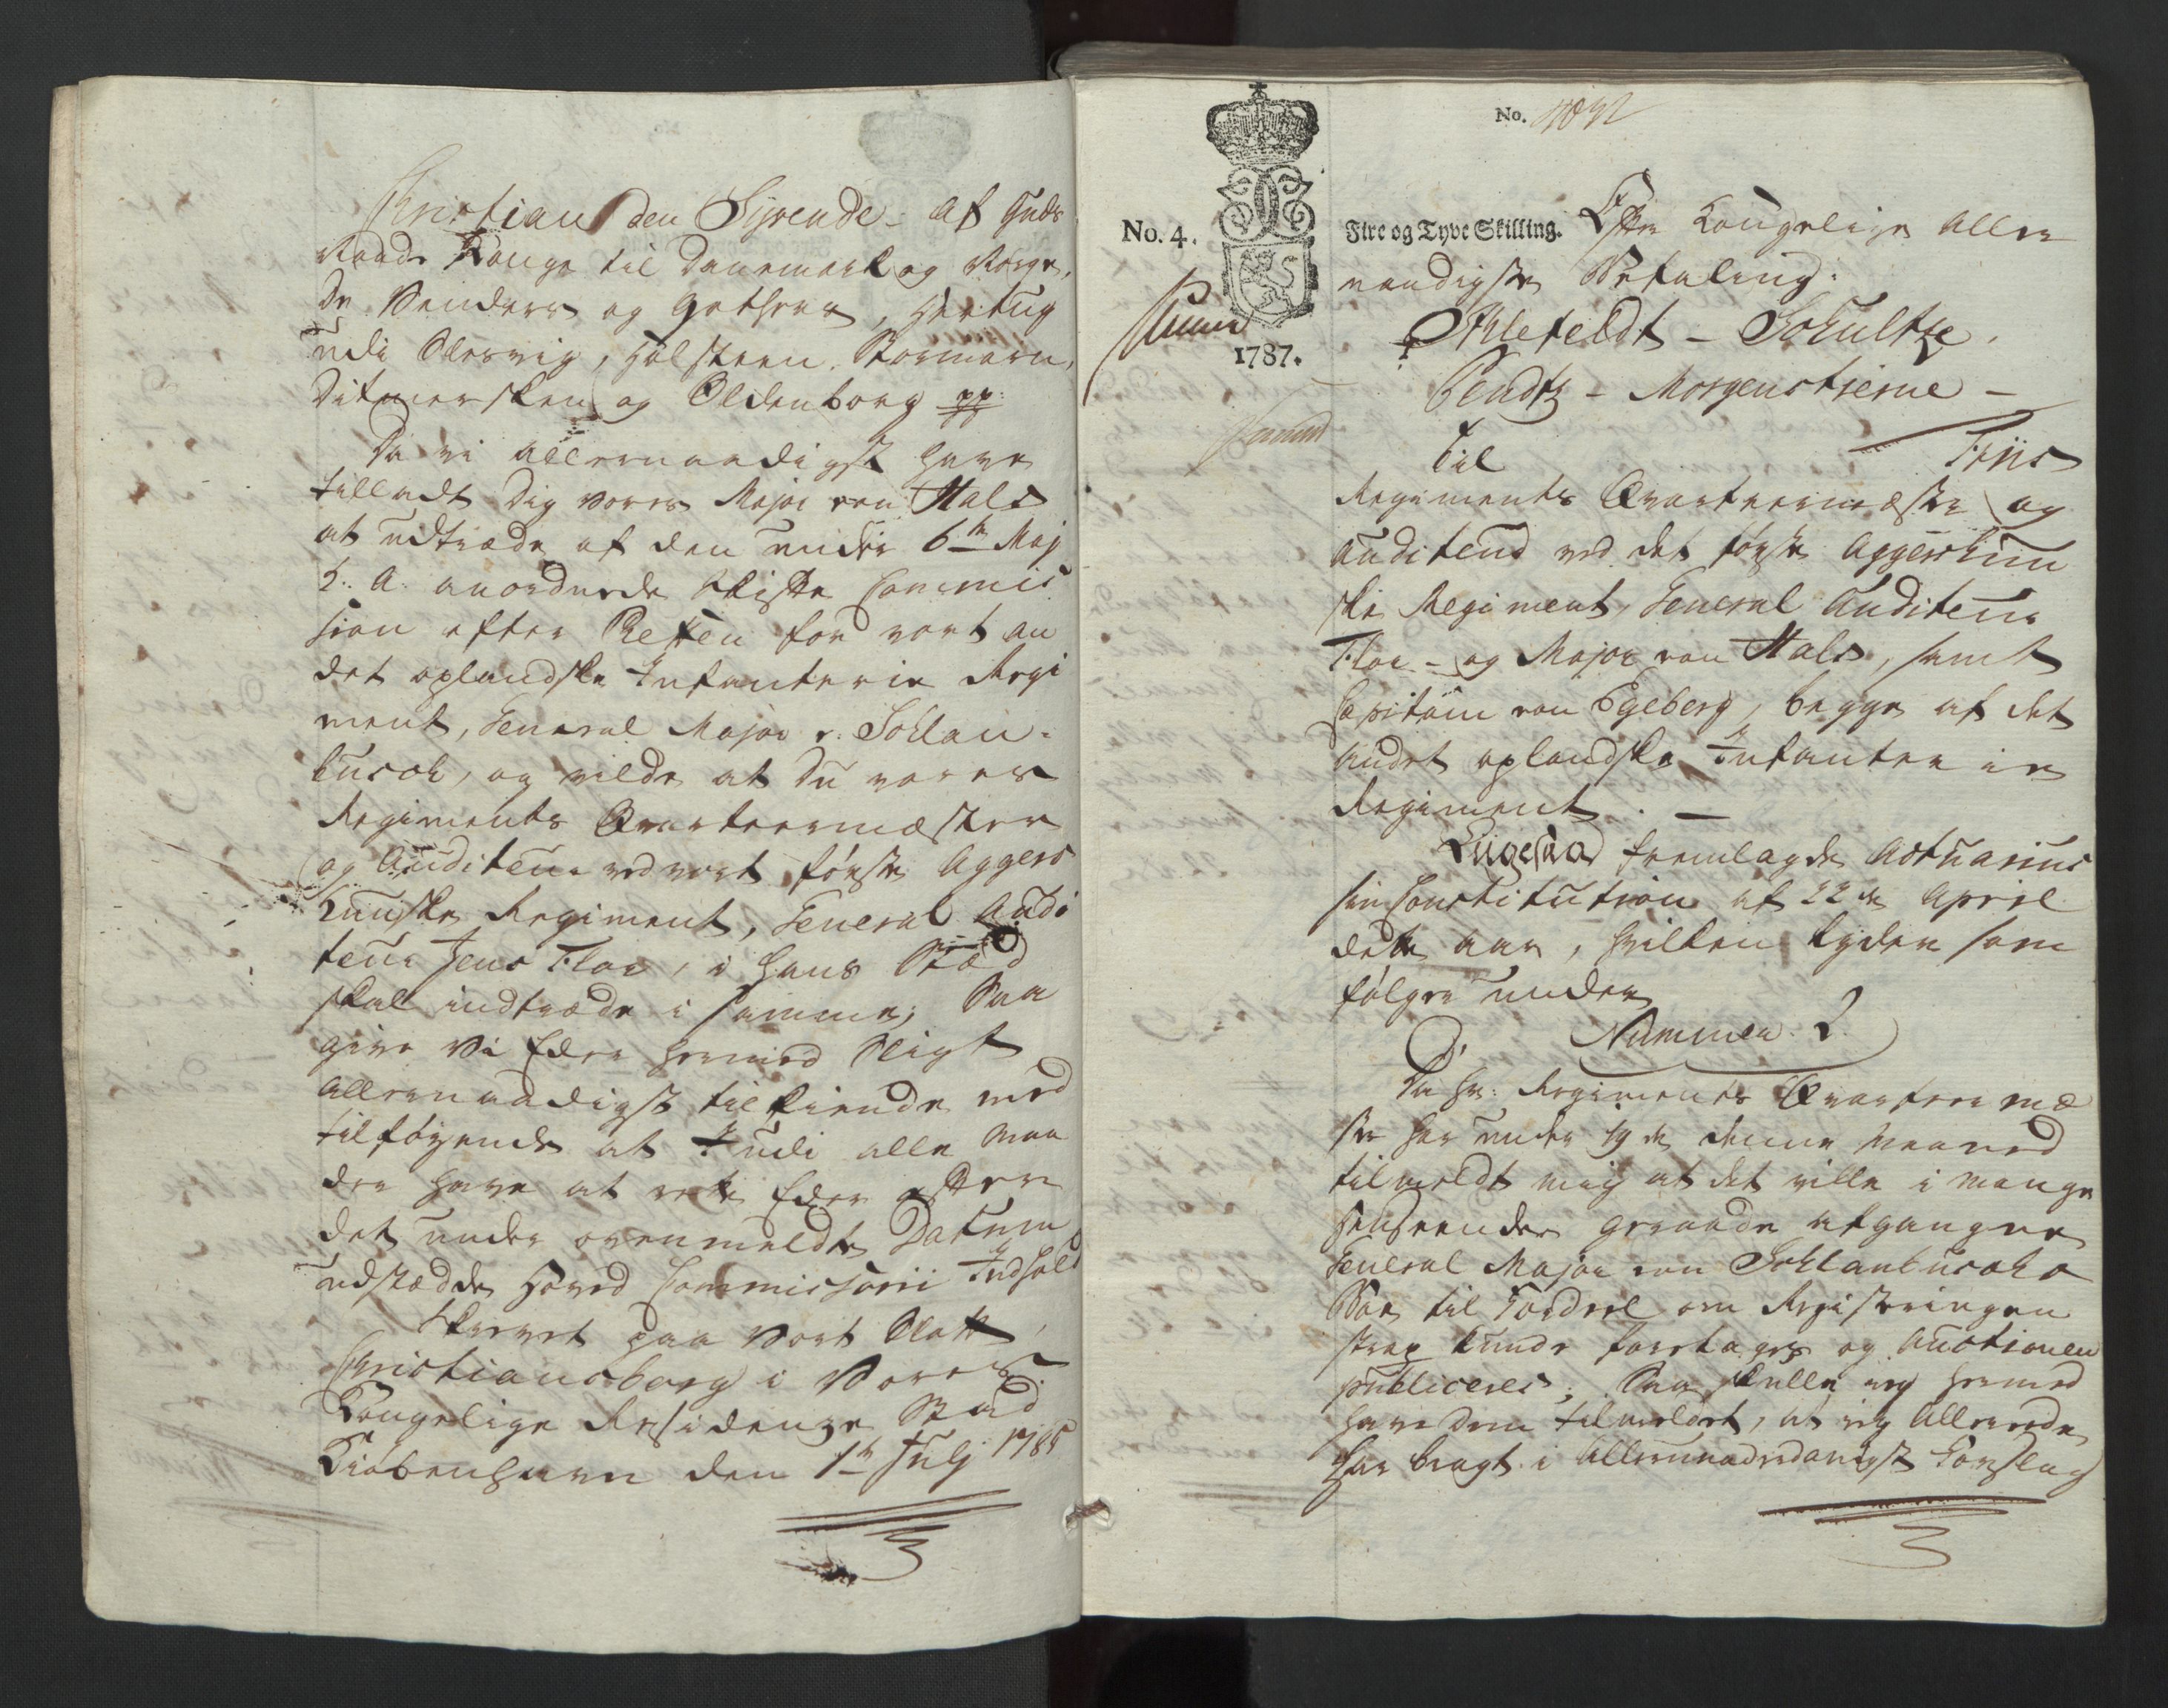 Christian den Syvende af Guds
Naade Konge til Danemark og Norge,
De Venders og Gothers, Hertug
udi Slesvig, Holsteen, Stormarn,
Ditmersken og Oldenborg pp:
Da vi allernaadigst have
tilladt Dig vores Major von Hals
at udtræde af den under 6te Maj
h: a: anordnede Skifte Commis
sion efter Chefen for vort an
det oplandske Infanterie Regi
ment, General Major v: Schlan-
busch, og vilde at Du vores
Regiments Qvarteermæster
og Auditeur ved vort første Aggers
huusske Regiment, General Audi
teur Jens Flor, i hans Stæd
skal indtræde i samme; Saa
give Vi Eder hermed Sligt
allernaadigst tilkiende med
tilføyende at I udi alle Maa
der have at rette Eder efter
det under ovenmeldte Datum
udstædde Hoved Commissorii Indhold
Skrevet paa Vort Slott
Christiansborg i Vores
Kongelige Residenze Stad
Kiøbenhavn den 1te Julj 1785
No. 4.
1787.
No.
Fire og Tyve Skilling. Efter Kongelige Aller
naadigste Befaling:
Ahlefeldt - Schultze.
Bendtz - Morgenstierne -
Friis
Til
Regiments Qvarteermæster og
Auditeur ved det første Aggershuu
ske Regiment, General Auditeur
Flor - og Major von Hals, samt
Capitain von Egeberg, begge af det
andet oplandske Infanterie
Regiment. -
Liigesaa fremlagde Actuarius
sin Constitution af 22de April
dette aar, hvilken lyder som
følger under
Nummer 2.
Da Hr: Regiments Qvarteermæ
ster har under 19de denne Maaned
tilmeldt mig at det ville i mange
Henseender geraade afgangne
General Major von Schlanbuschs
Boe til Fordeel om Registeringen
strax kunde foretages og Auctionen
publiceres; Saa skulle ieg hermed
have dem tilmeldet, at ieg allerede
har bragt i allerunderdanigst Forslag